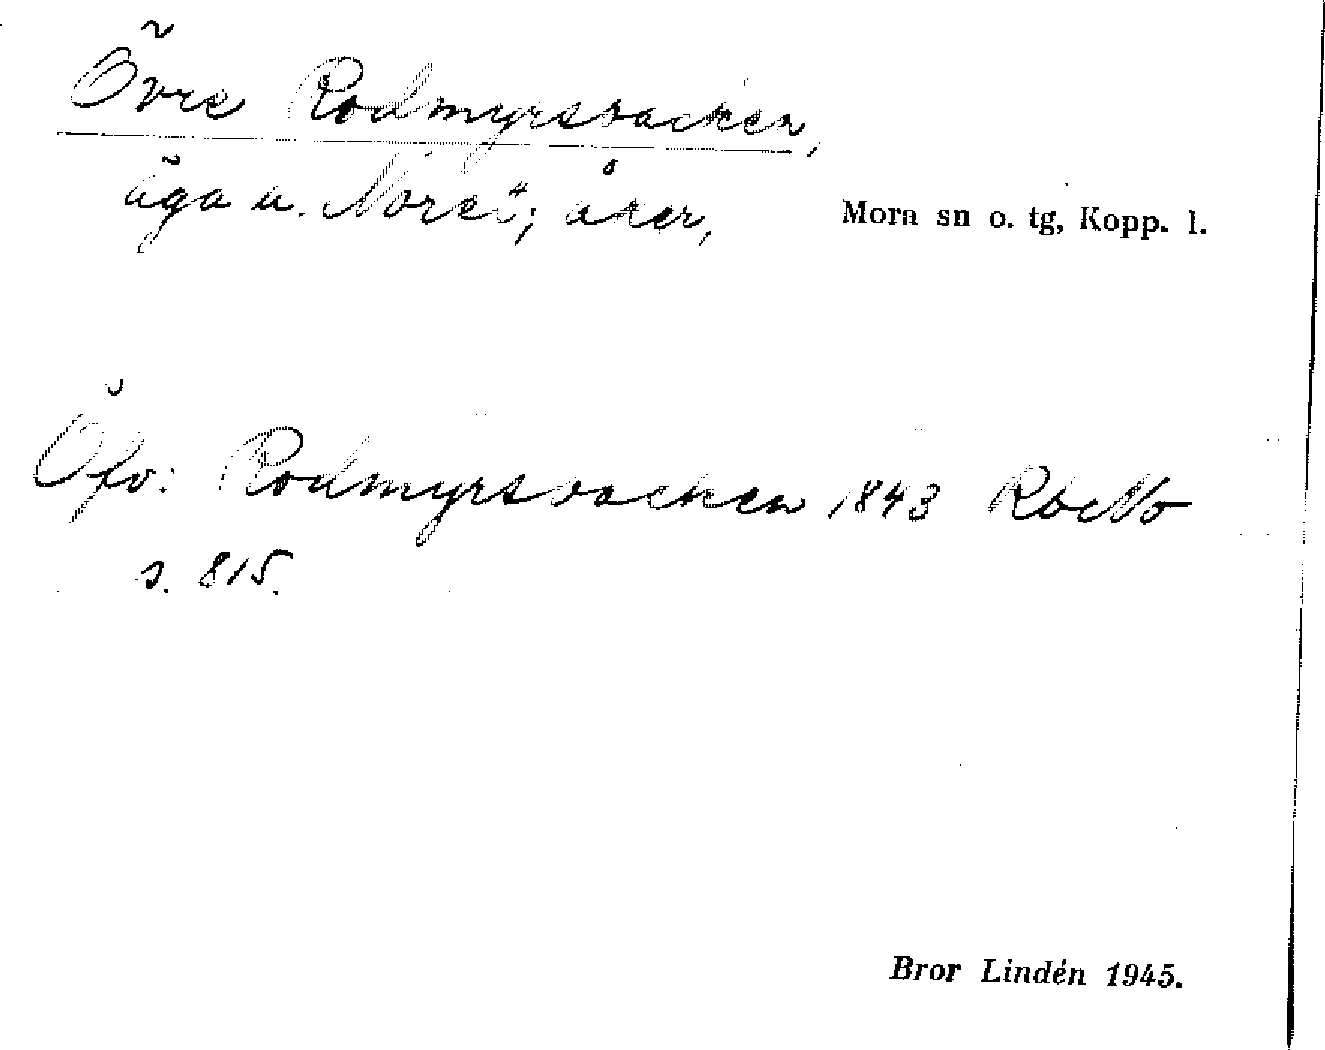 Övre Rodmyrsbacken,
äga u. Noret; åker,
Mora sn o. tg, Kopp. l.
Öfv: Rodmyrsbacken 1843 RbcNo
s. 815.
Bror Lindén 1945.